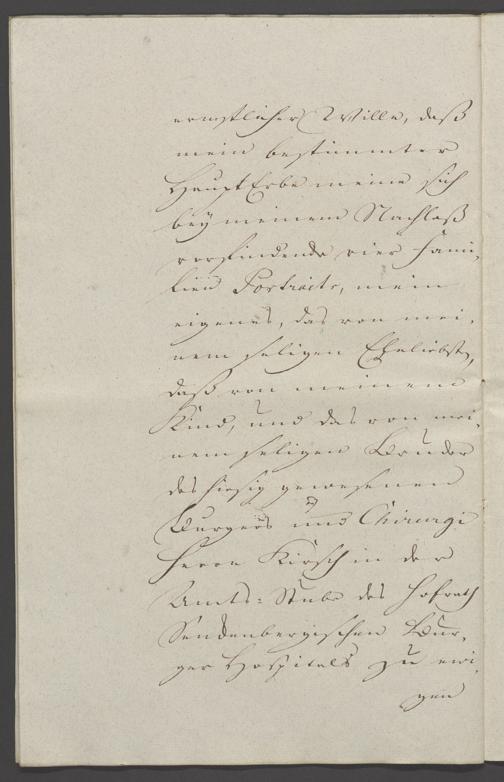 ernstlicher Wille, daß
mein bestimmter
Haupt Erbe meine sich
bey meinem Nachlaß
vorfindende vier Fami-
lien Portraits, mein
eigenes, das von mei-
nem seligen Eheliebst,
daß von meinem
Kind, und das von mei-
nem seligen Bruder
des hiesig gewesenen
Burgers und Chirurgi
Herrn Kirsch in der
Amts-Stube des Hofrath
Senckenbergischen Bür-
ger Hospitals zu ewi-
gen